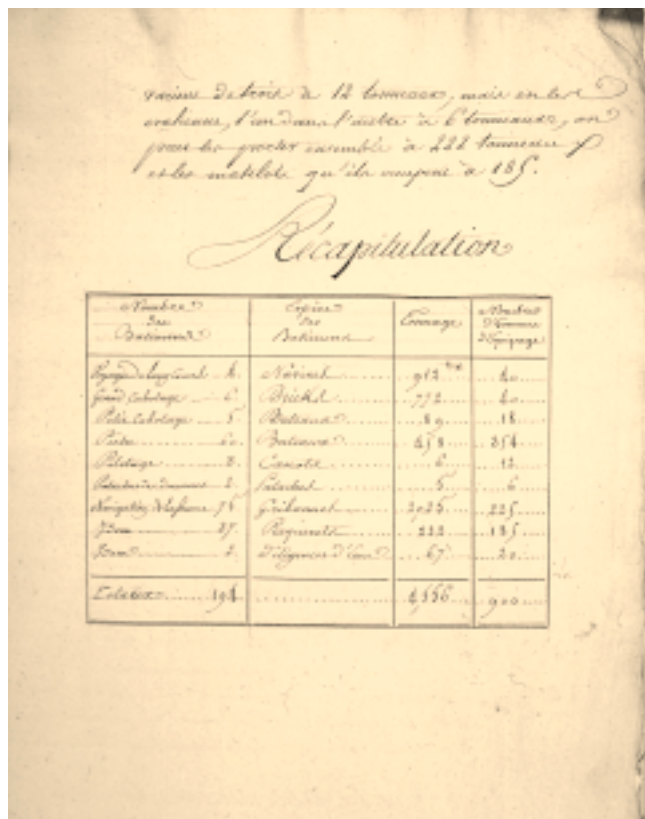 de trois à 12 tonneaux, mais en les
évaluant, l'un dans l'autre à 6 tonneaux, on
peut les porter ensemble à 222 tonneaux
et les matelots qu'ils à 185.
Récapitulation
Nombre des Batimens | Espèce des Batimens | Tonnage | Nombre d'hommes d'Equipage
Voyage de long Cours 4. | Navires | 912 | 40
Grand Cabotage 6. | Bricks | 772 | 40
Petit Cabotage 5. | Bateaux | 89 | 18
Pêche 60. | Bateaux | 458 | 354
Pilotage | Canots | 6 | 12
Pataches de douanes 2. | Pataches | 5 | 6
Navigation 75 | Gribannes | 2025 | 225
Idem 37 | 222 | 185
Idem 2. | Diligences d'eau | 67 | 20
Totaux 194 | 4556 | 900